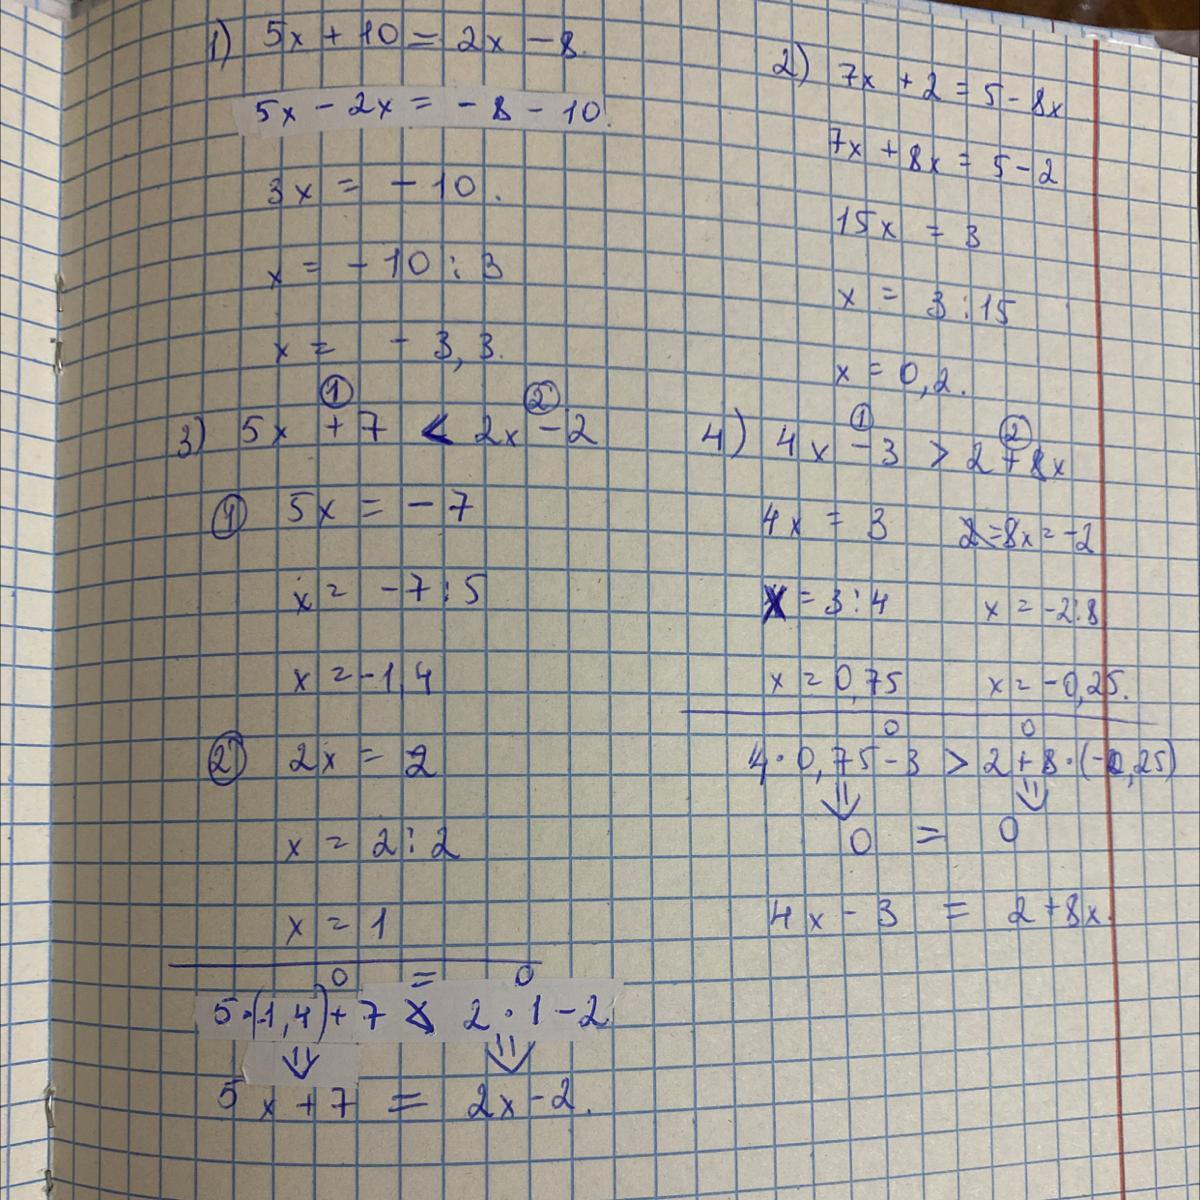 1) 5x + 10 = 2x - 8.
5x - 2x = - 8 - 10.
3x = - 10.
x = - 10 : 3
x = - 3,3.
2) 7x + 2 = 5 - 8x
7x + 8x = 5 - 2
15x = 3
x = 3 : 15
x = 0,2.
① ②
3) 5x + 7 < 2x - 2
① 5x = - 7
x = -7 : 5
x = -1,4
② 2x = 2
x = 2 : 2
x = 1
0 = 0
5·(-1,4) + 7 < 2 · 1 - 2
⇓ ⇓
5x + 7 = 2x - 2.
① ②
4) 4x - 3 > 2 + 8x
4x = 3 8x = -2
x = 3 : 4 x = -2:8
x = 0,75 x = -0,25.
0 0
4 · 0,75 - 3 > 2 + 8 · (-0,25)
⇓ ⇓
0 = 0
4x - 3 = 2 + 8x.